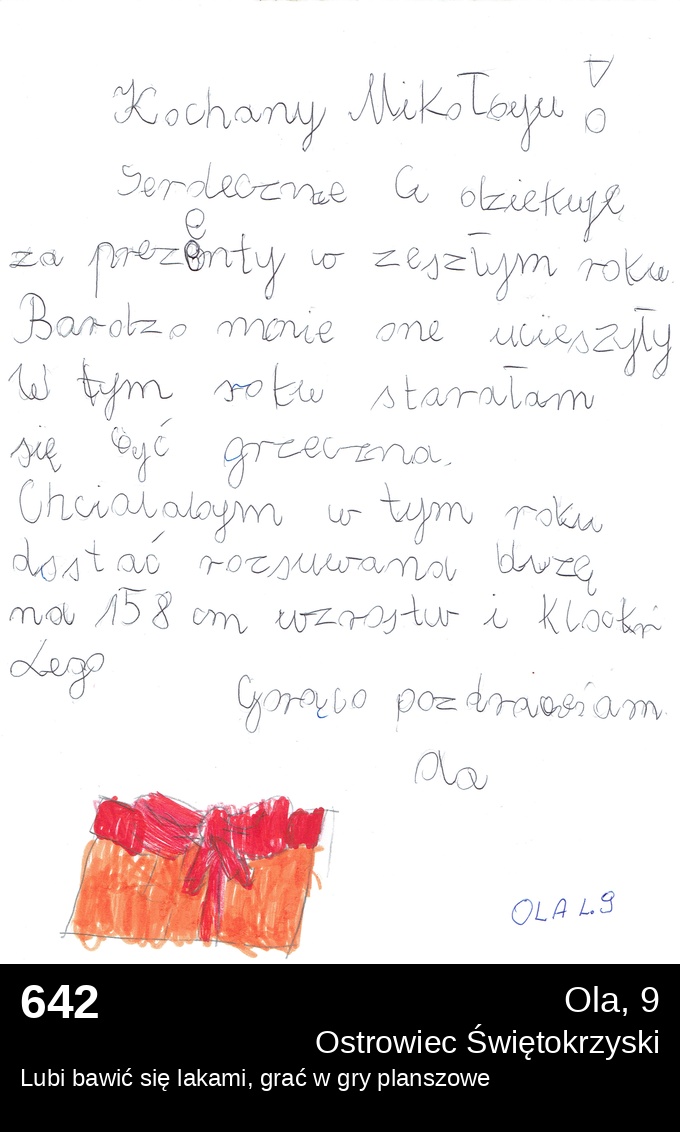 Kochany Mikołaju!
Serdecznie Ci dziękuję
za prezenty w zeszłym roku.
Bardzo mnie one ucieszyły
W tym roku starałam
się być grzeczna.
Chciałabym w tym roku
dostać rozsuwana bluzę
na 158 cm wzrostu i klocki
Lego
Gorąco pozdrawiam
Ola
OLA L.9
642
Ola, 9
Ostrowiec Świętokrzyski
Lubi bawić się lakami, grać w gry planszowe